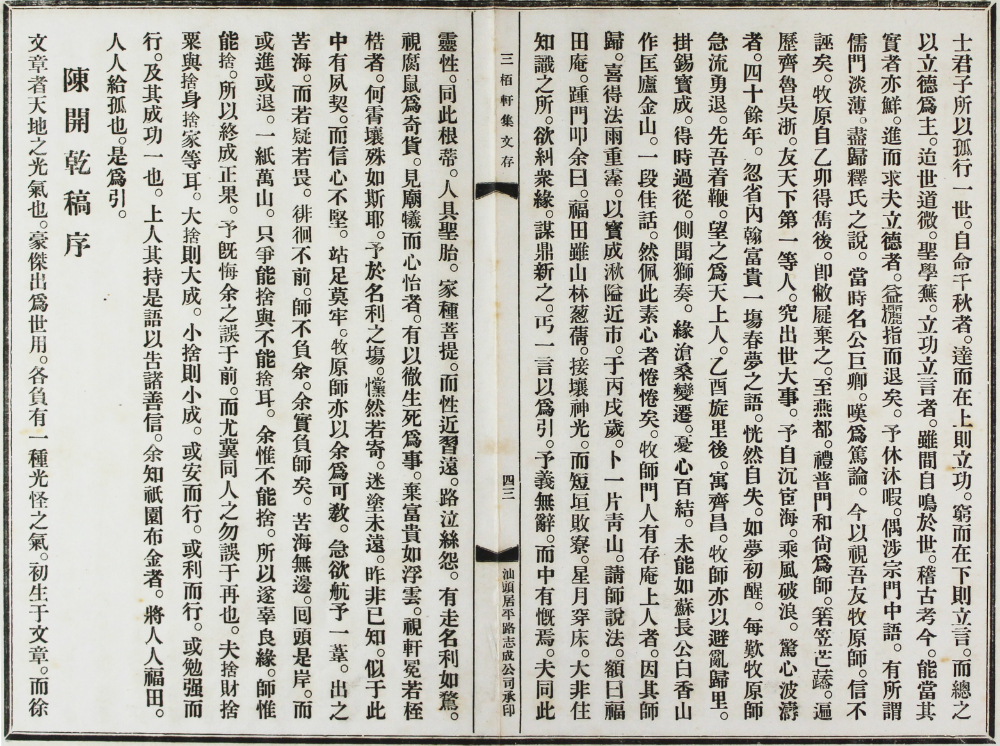 士君子所以孤行一世。自命千秋者。達而在上則立功。窮而在下則立言。而總之
以立德爲主。迨世道微。聖學蕪。立功立言者。雖間自鳴於世。稽古考今。能當其
實者亦鮮。進而求夫立德者。益攦指而退矣。予休沐暇。偶涉宗門中語。有所謂
儒門淡薄。盡歸釋氏之說。當時名公巨卿。嘆爲篤論。今以視吾友牧原師。信不
誣矣。牧原自乙卯得雋後。卽敝屣棄之。至燕都。禮普門和尙爲師。箬笠芒蹻。遍
歷齊魯吳浙。友天下第一等人。究出世大事。予自沉宦海。乘風破浪。驚心波濤
者。四十餘年。忽省內翰富貴一場春夢之語。恍然自失。如夢初醒。每歎牧原師
急流勇退。先吾着鞭。望之爲天上人。乙酉旋里後。寓齊昌。牧師亦以避亂歸里。
掛錫寶成。得時過從。側聞獅奏。緣滄桑變遷。憂心百結。未能如蘇長公白香山
作匡廬金山。一段佳話。然佩此素心者惓惓矣。牧師門人有存庵上人者。因其師
歸。喜得法雨重霑。以寶成湫隘近市。于丙戌歲。卜一片靑山。請師說法。額曰福
田庵。踵門叩余曰。福田雖山林葱蒨。接壤神光。而短垣敗寮。星月穿床。大非住
知識之所。欲糾衆緣。謀鼎新之。丐一言以爲引。予義無辭。而中有慨焉。夫同此
三栢軒集文存
四三
汕頭居平路志成公司承印
靈性。同此根蒂。人具聖胎。家種菩提。而性近習遠。路泣絲怨。有走名利如騖。
視腐鼠爲奇貨。見廟犧而心怡者。有以徹生死爲事。棄富貴如浮雲。視軒冕若桎
梏者。何霄壤殊如斯耶。予於名利之塲。儻然若寄。迷塗未遠。昨非已知。似于此
中有夙契。而信心不堅。站足莫牢。牧原師亦以余爲可敎。急欲航予一葦。出之
苦海。而若疑若畏。徘徊不前。師不負余。余實負師矣。苦海無邊。囘頭是岸。而
或進或退。一紙萬山。只爭能捨與不能捨耳。余惟不能捨。所以遂辜良緣。師惟
能捨。所以終成正果。予旣悔余之誤于前。而尤冀同人之勿誤于再也。夫捨財捨
粟與捨身捨家等耳。大捨則大成。小捨則小成。或安而行。或利而行。或勉强而
行。及其成功一也。上人其持是語以吿諸善信。余知祇園布金者。將人人福田。
人人給孤也。是爲引。
陳開乾稿序
文章者天地之光氣也。豪傑出爲世用。各負有一種光怪之氣。初生于文章。而徐